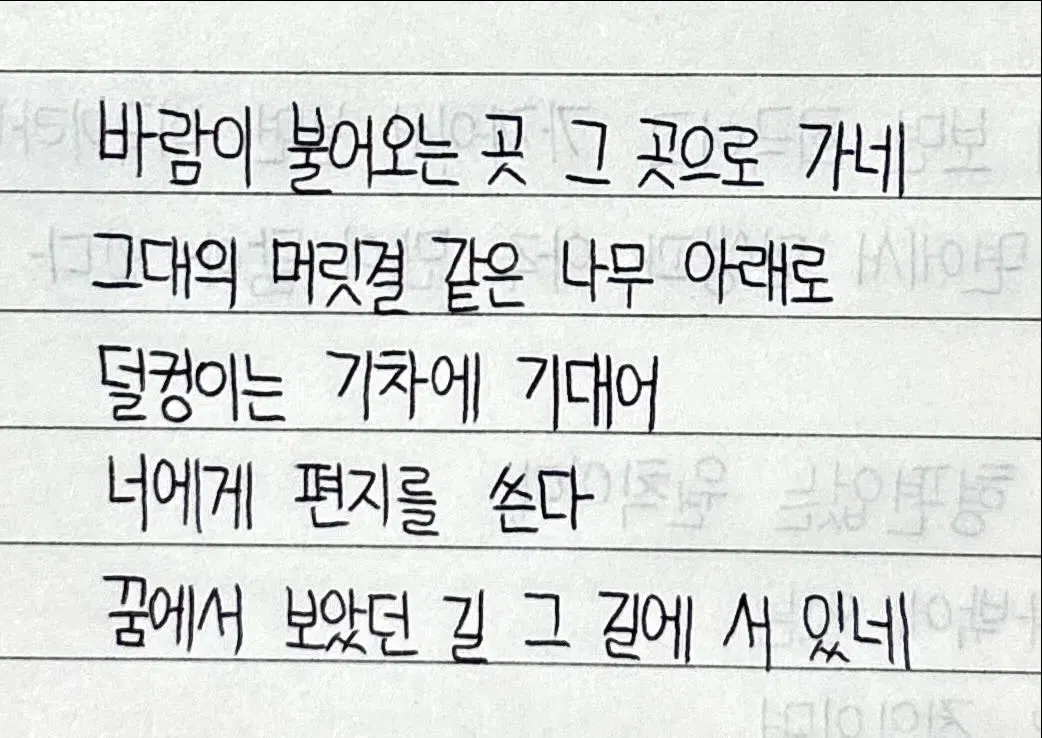 바람이 불어오는 곳 그 곳으로 가네
그대의 머릿결 같은 나무 아래로
덜컹이는 기차에 기대어
너에게 편지를 쓴다
꿈에서 보았던 길 그 길에 서 있네